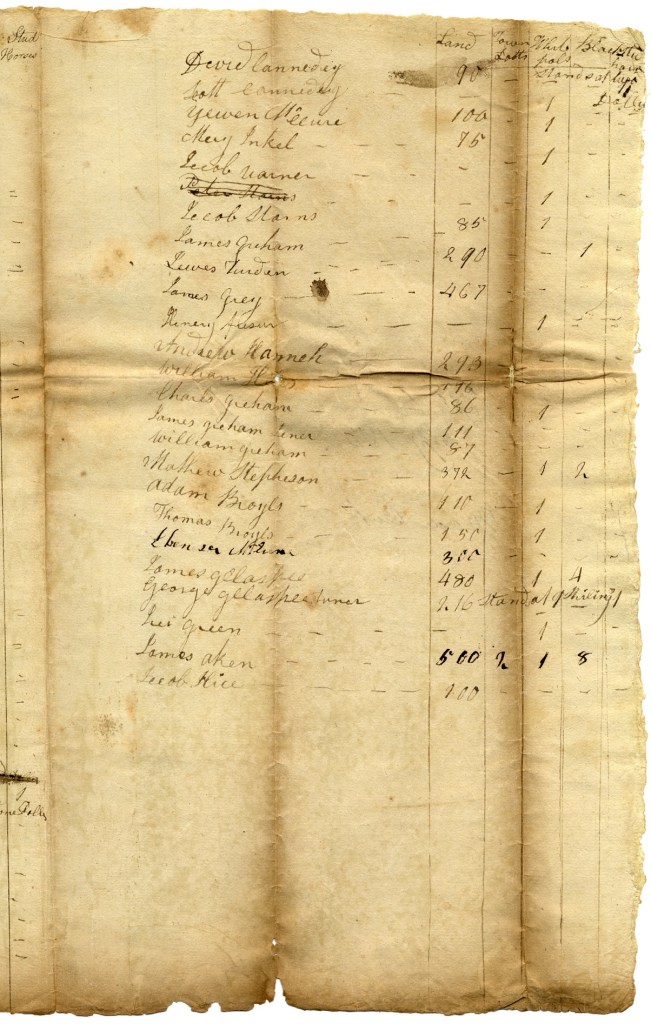 Stud
Horses
Land Town Lotts White pols Black
David Cannedey 90 Stands at
Scott Cannedey - - 1
Yewen McCure 100 - 1
Mery Inkel - - 75 - - -
Jecob Varner - - - 1
Peter Starns - - 1
Jecob Starns 85 1
James Greham - - 290 - - 1
Lewes Jurdan - - -
James Grey - - 467 -
Henery - - - 1 -
Andrew Hanneh - 293
William
Charles Greham - 86 - 1
James Greham Juner 111 -
William Greham - 87
Mathew Stepheson 372 - 1 2
Adam Broyls - - 110 - 1 -
Thomas Broyls - - 150 - 1 -
Ebenezer 300 - -
James Gelaspee 480 1 4
George Gelaspee Juner 216 Stands at 9 Shilings 1
Green - - - - 1 -
James Aken - - - 500 2 1 8
Jecob Hice - - - 100 - - - -
1